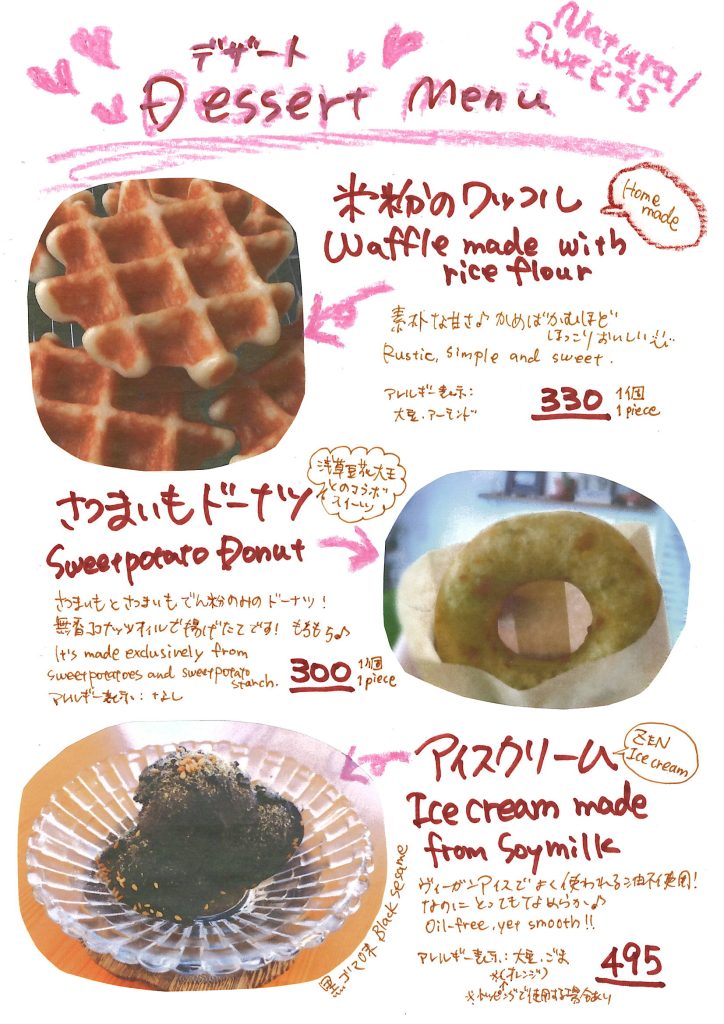 デザート
Dessert Menu
Natural
Sweets
米粉のワッフル
Home
made
Waffle made with
rice flour
素朴な甘さ♪ かめばかむほど
ほっこりおいしい
Rustic, simple and sweet.
アレルギー表示：
大豆、アーモンド
330
1個
1piece
さつまいもドーナツ
浅草豆花大王
とのコラボ
スイーツ
Sweetpotato Donut
さつまいもとさつまいもでん粉のみのドーナツ！
無香ココナッツオイルで揚げたてです！もちもち♪
It's made exclusively from
sweetpotatoes and sweetpotato
starch.
アレルギー表示：なし
300
1個
1piece
アイスクリーム
ZEN
Ice cream
Ice cream made
from Soymilk
ヴィーガンアイスでよく使われる油不使用！
なのにとってもなめらか♪
Oil-free, yet smooth!!
アレルギー表示：大豆、ごま
※(オレンジ)
※トッピングで使用する場合あり
495
黒ゴマ味 Black sesame